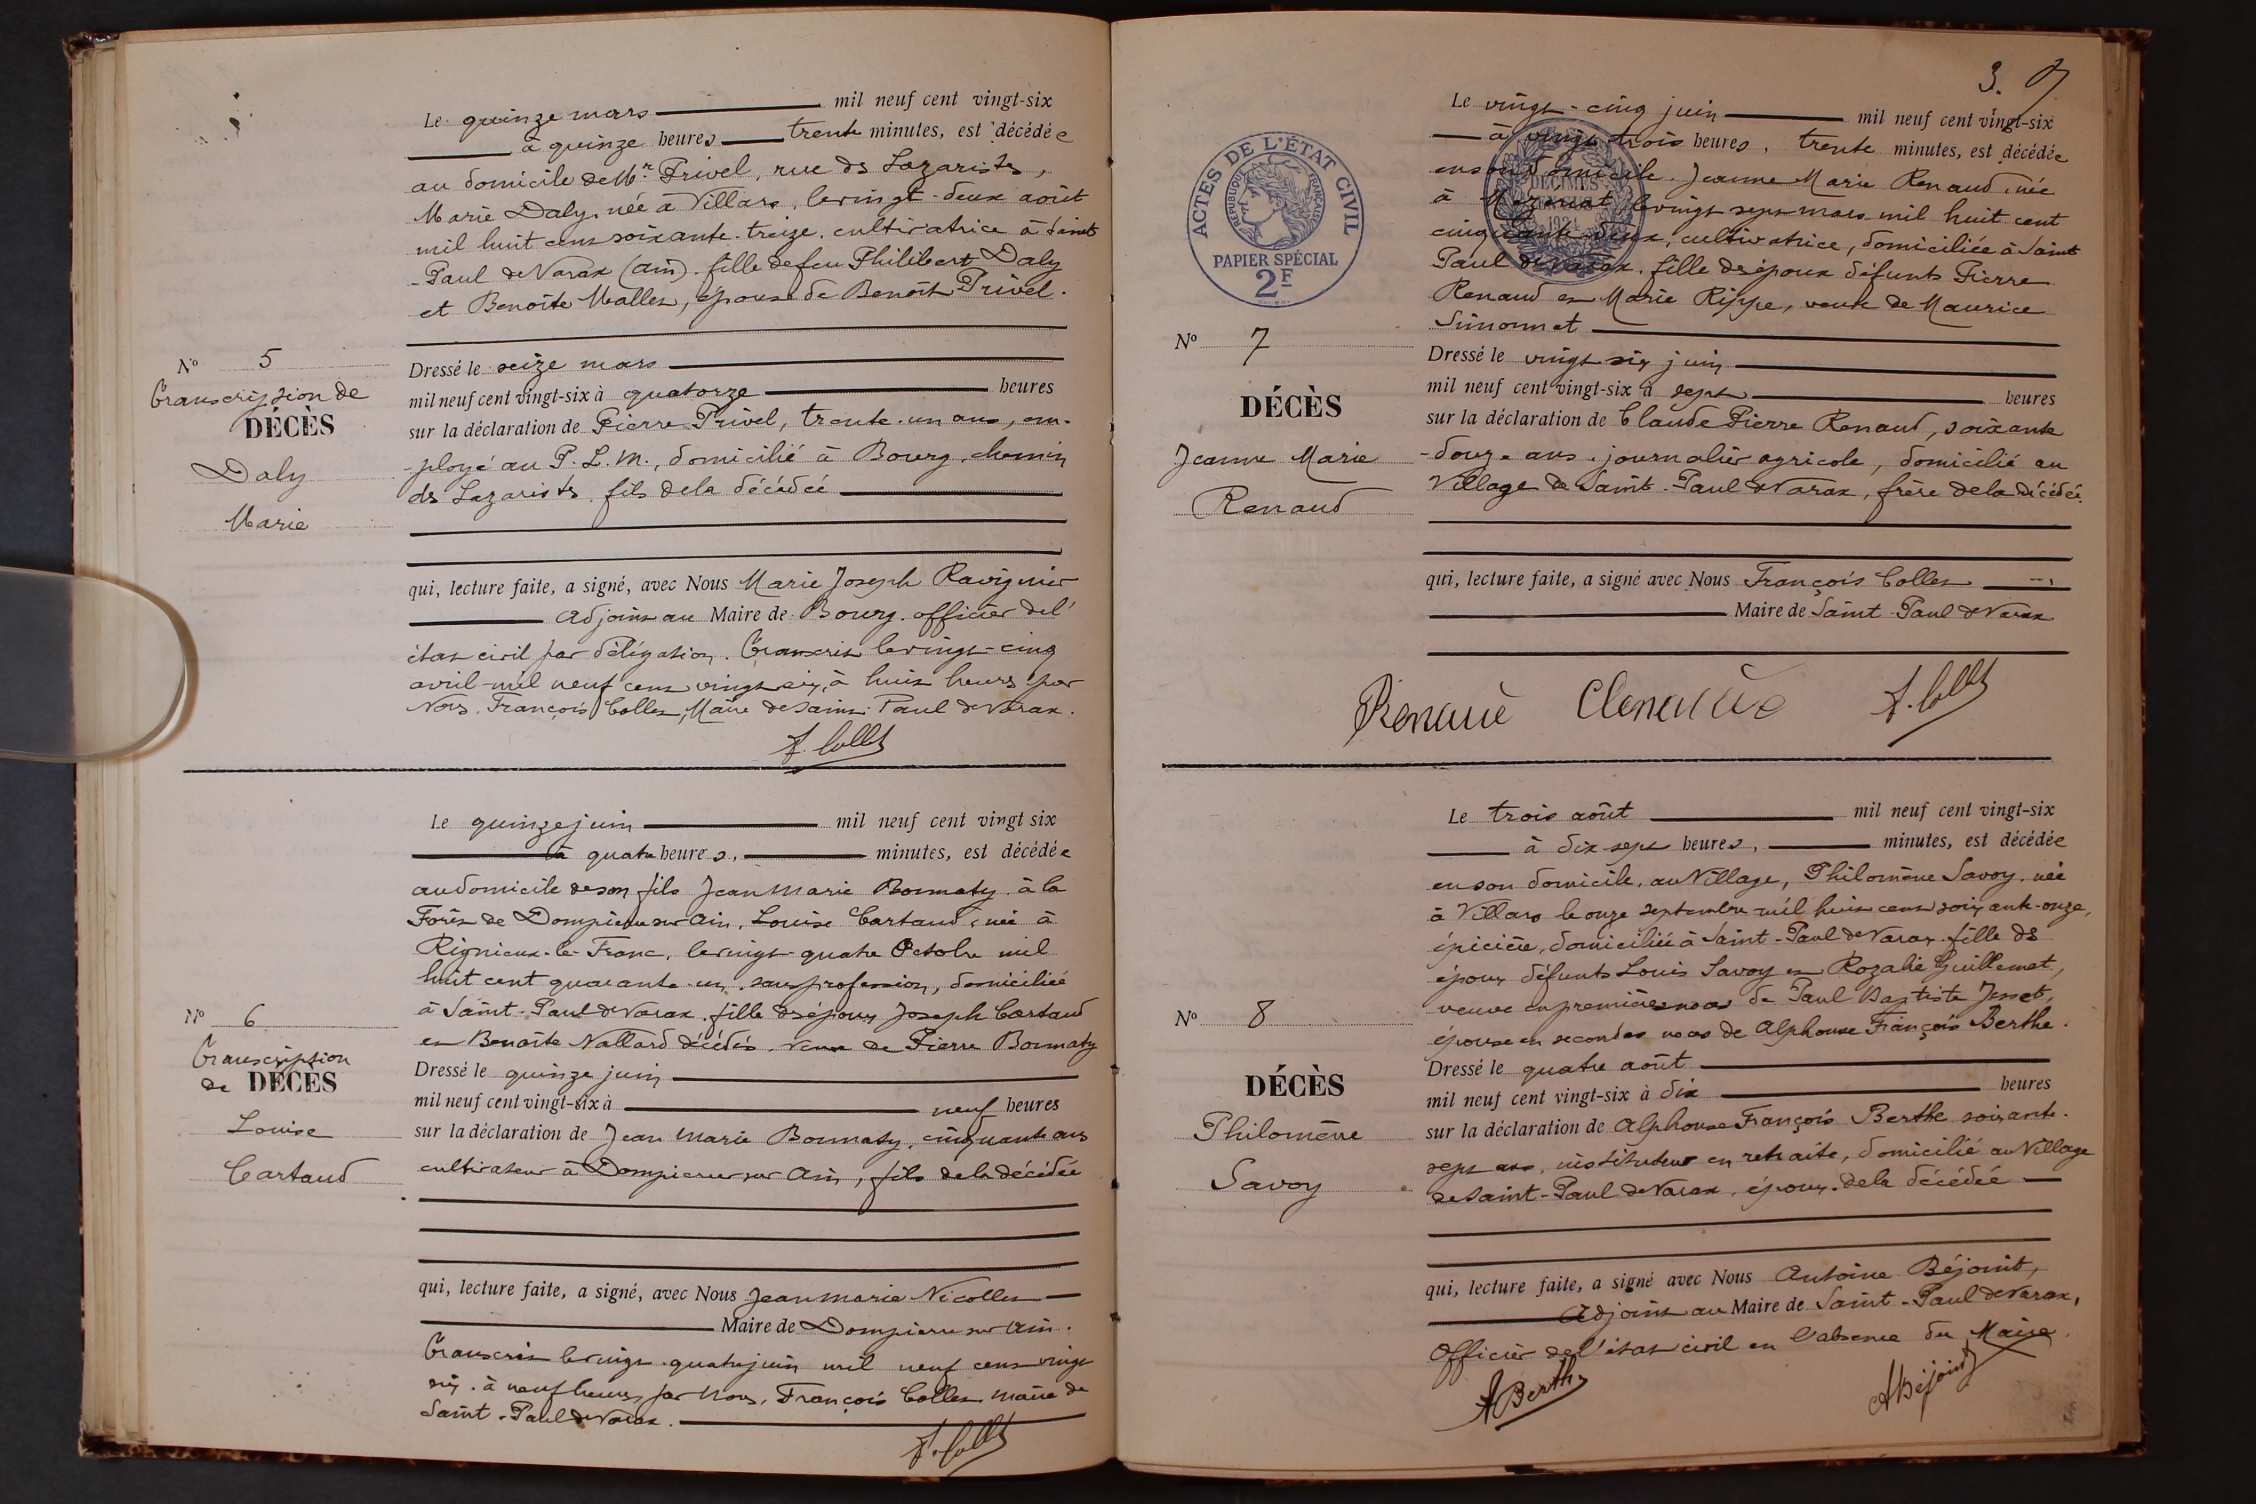 Le quinze mars mil neuf cent vingt-six
à quinze heures trente minutes, est décédée
au domicile de Mr Privel, rue des Lazaristes,
Marie Daly, née à Villars, le vingt-deux août
mil huit cent soixante-treize, cultivatrice à Saint
-Paul de Varax (Ain). fille de feu Philibert Daly
et Benoîte Mallet, épouse de Benoît Privel.
No 5
Transcription de
DÉCÈS
Daly
Marie
Dressé le seize mars
mil neuf cent vingt-six à quatorze heures
sur la déclaration de Pierre Privel, trente-un ans, em-
-ployé au P.L.M., domicilié à Bourg, chemin
des Lazaristes, fils de la décédée
qui, lecture faite, a signé, avec Nous Marie Joseph Ravignier
adjoint au Maire de Bourg. officier de l'
état civil par délégation. Transcrit le vingt-cinq
avril mil neuf cent vingt six, à huit heures par
Nous. François Collet, Maire de Saint-Paul de Varax.
F. Collet
Le quinze juin mil neuf cent vingt six
à quatre heures, minutes, est décédée
au domicile de son fils Jean Marie Bonmaty à la
Forêt de Dompierre sur Ain, Louise Cartaud, née à
Rignieux-le-Franc, le vingt-quatre Octobre mil
huit cent quarante-un, sans profession, domiciliée
à Saint-Paul de Varax, fille des époux Joseph Cartaud
et Benoîte Vallard décédés, veuve de Pierre Bonmaty
No 6
Transcription
de DÉCÈS
Louise
Cartaud
Dressé le quinze juin
mil neuf cent vingt-six à neuf heures
sur la déclaration de Jean Marie Bonmaty, cinquante ans
cultivateur à Dompierre sur Ain, fils de la décédée
qui, lecture faite, a signé, avec Nous Jean Marie Nicollet
Maire de Dompierre sur Ain.
Transcrit le vingt-quatre juin mil neuf cent vingt
six, à neuf heures, par Nous, François Collet maire de
Saint-Paul de Varax.
F. Collet
3.
ACTES DE L'ÉTAT CIVIL
RÉPUBLIQUE FRANÇAISE
PAPIER SPÉCIAL
2F
DÉCIMES
1924
Le vingt-cinq juin mil neuf cent vingt-six
à vingt trois heures, trente minutes, est décédée
en son domicile, Jeanne Marie Renaud, née
à Mézériat, le vingt sept mars mil huit cent
cinquante-deux, cultivatrice, domiciliée à Saint
Paul de Varax, fille des époux défunts Pierre
Renaud et Marie Rippe, veuve de Maurice
Simonnet
No 7
DÉCÈS
Jeanne Marie
Renaud
Dressé le vingt six juin
mil neuf cent vingt-six à sept heures
sur la déclaration de Claude Pierre Renaud, soixante
-douze ans, journalier agricole, domicilié au
Village de Saint-Paul de Varax, frère de la décédée
qui, lecture faite, a signé avec Nous François Collet
Maire de Saint-Paul de Varax
Renaud F. Collet
Le trois août mil neuf cent vingt-six
à dix sept heures, minutes, est décédée
en son domicile, au Village, Philomène Savoy, née
à Villars le onze septembre mil huit cent soixante-onze,
épicière, domiciliée à Saint-Paul de Varax, fille des
époux défunts Louis Savoy et Rozalie Guillemet,
veuve en premières noces de Paul Baptiste Josset,
épouse en secondes noces de Alphonse François Berthe.
No 8
DÉCÈS
Philomène
Savoy
Dressé le quatre août
mil neuf cent vingt-six à dix heures
sur la déclaration de Alphonse François Berthe soixante-
sept ans, instituteur en retraite, domicilié au Village
de Saint-Paul de Varax, époux de la décédée
qui, lecture faite, a signé avec Nous Antoine Béjoint,
Adjoint au Maire de Saint-Paul de Varax,
Officier de l'état civil en l'absence du Maire.
ABerthe ABéjoint